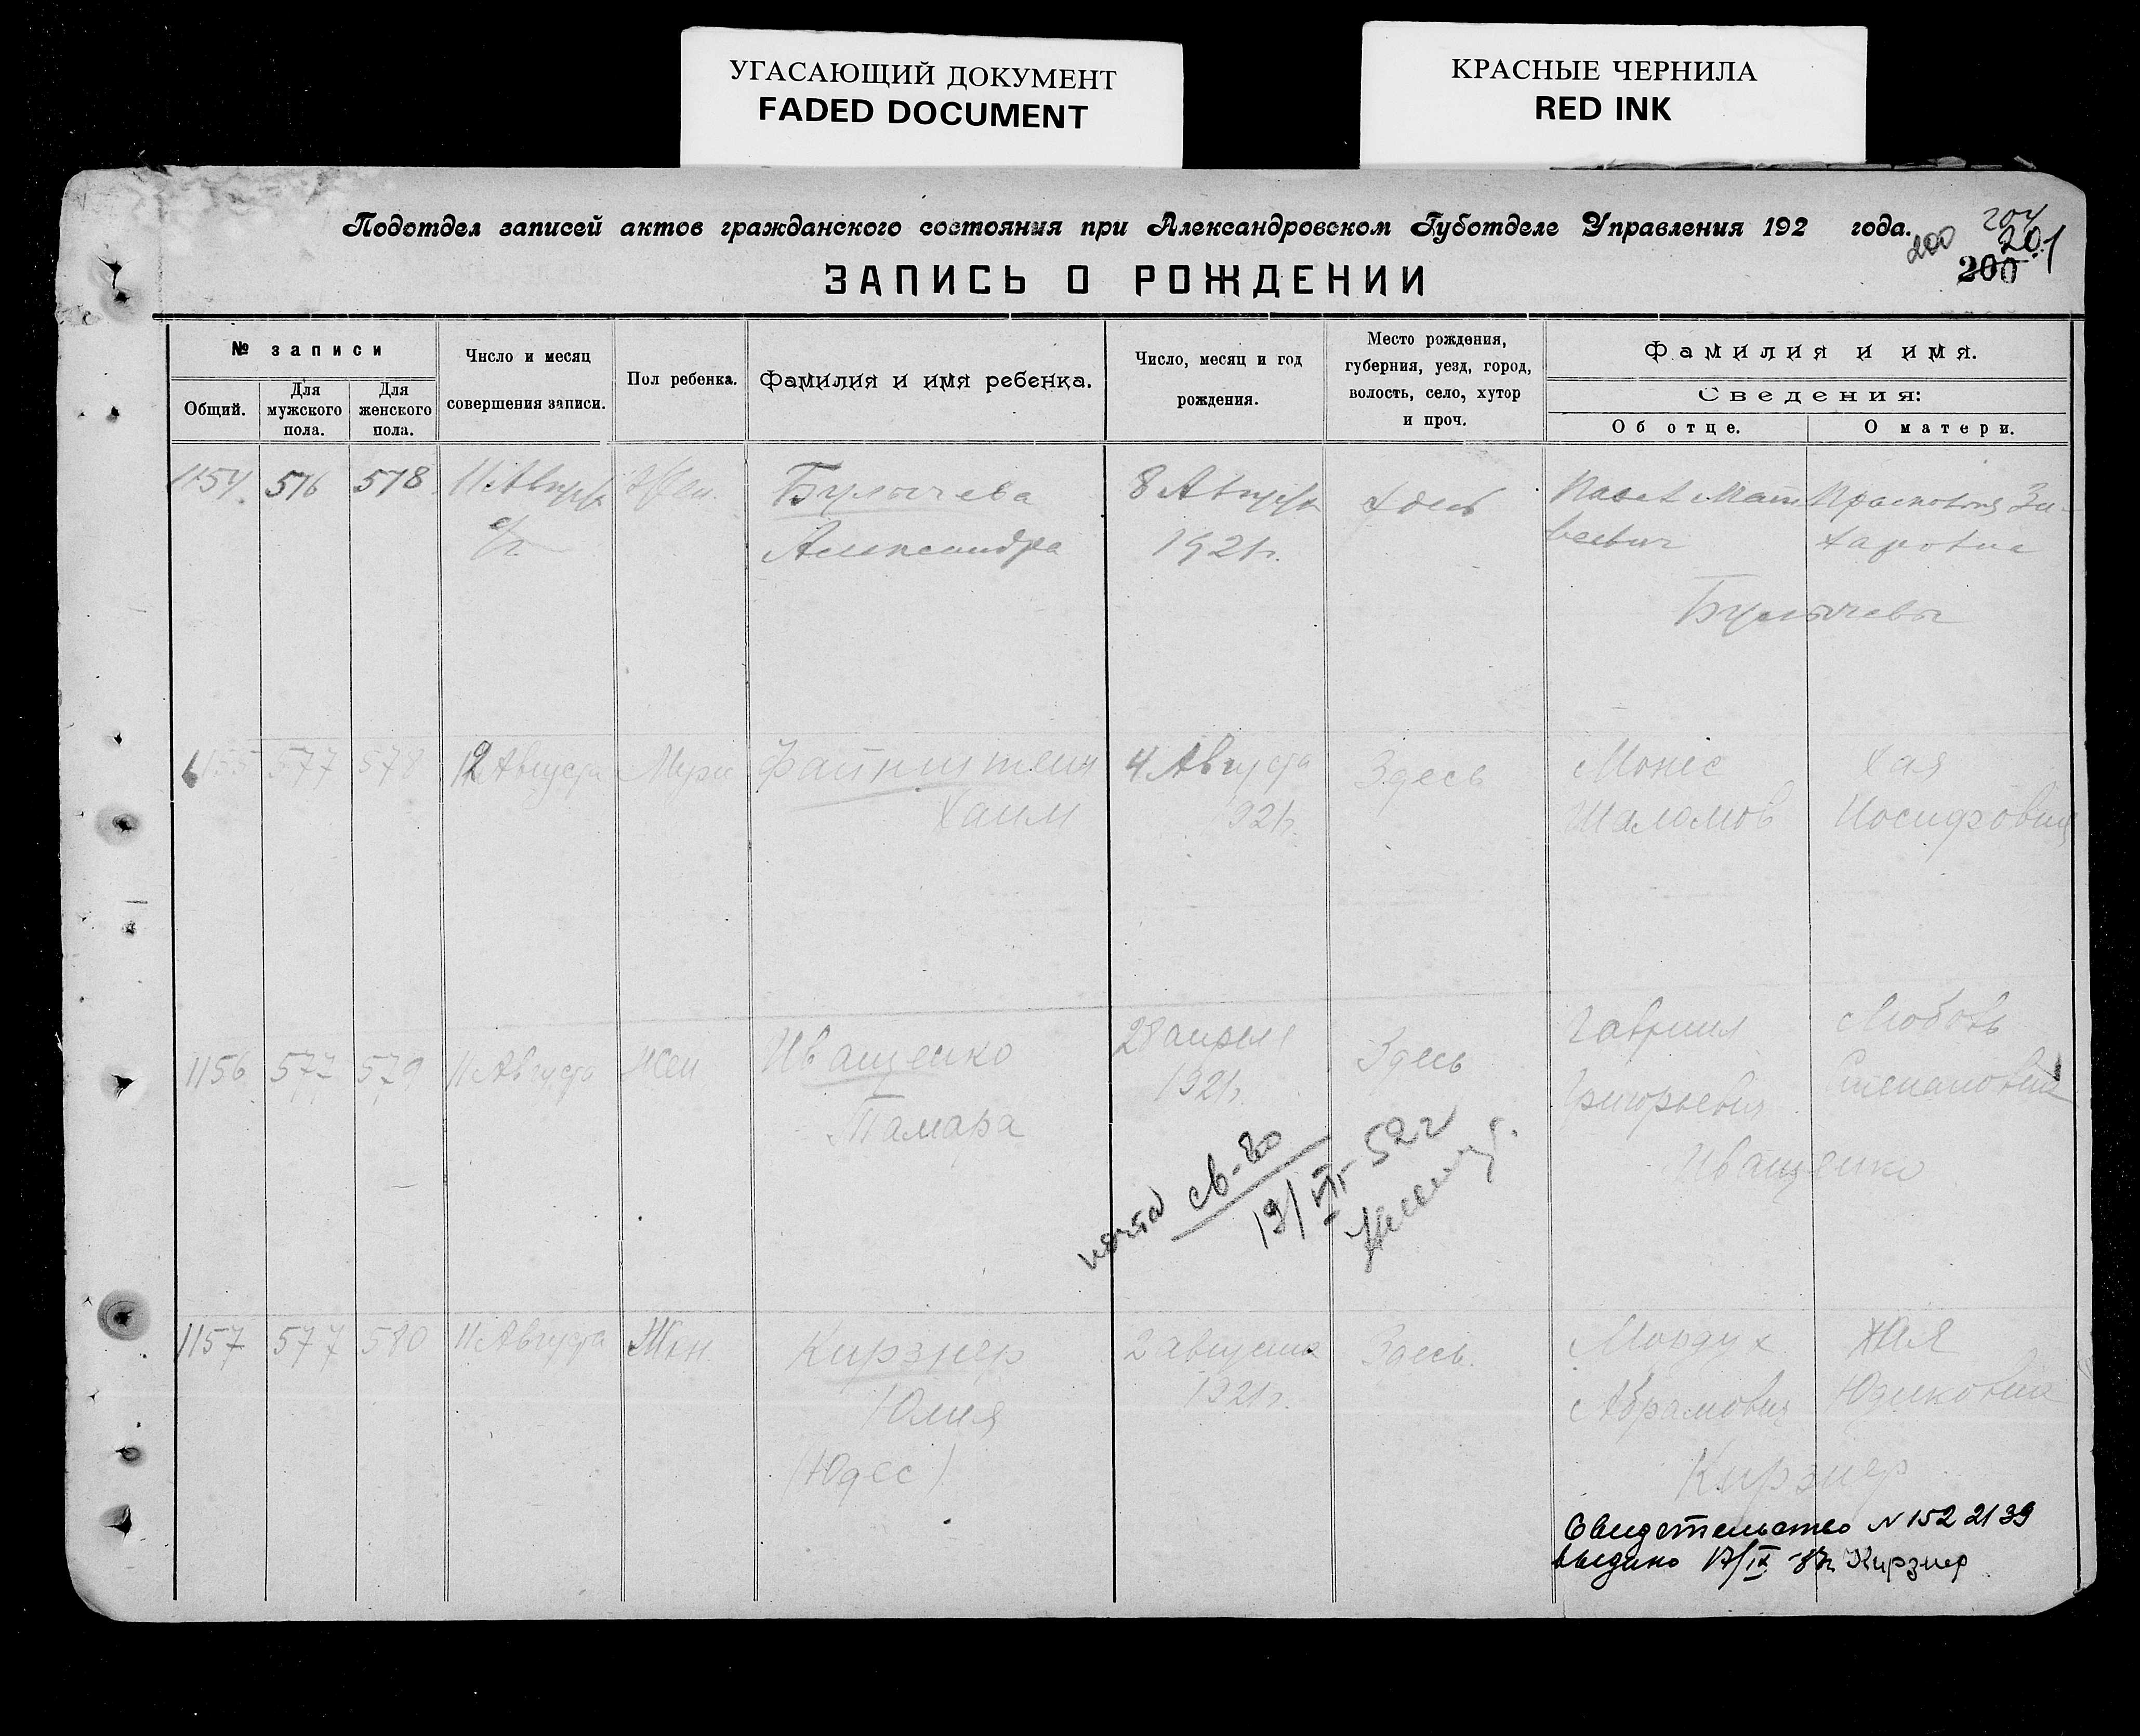 УГАСАЮЩИЙ ДОКУМЕНТ
FADED DOCUMENT
КРАСНЫЕ ЧЕРНИЛА
RED INK
Подотдел записей актов гражданского состояния при Александровском Губотделе Управления 192 года.
204
200 201
200
ЗАПИСЬ О РОЖДЕНИИ
№ записи
Общий.
Для мужского пола.
Для женского пола.
Число и месяц совершения записи.
Пол ребенка.
Фамилия и имя ребенка.
Число, месяц и год рождения.
Место рождения, губерния, уезд, город, волость, село, хутор и проч.
Фамилия и имя.
Сведения:
Об отце.
О матери.
1154 576 578 11 Августа Жен. Булычева 8 Августа Здесь Павел Мат Прасковья За-
с/г Александра 1921г. веевич харовна
Булычевы
1155 577 578 12 Августа Муж Файнштейн 4 Августа Здесь Монес Хая
Хаим 921г. Шаломов Иосифовна
1156 577 579 11 Августа Жен Иващенко 28 апреля Здесь Гавриил Любовь
Тамара 1921г. Григорьевич Степановна
Иващенко
св-во
19/VII-52г
1157 577 580 11 Августа Жен. Кирзнер 2 августа Здесь. Мордух Хая
Юлия 1921г. Абрамович Юдиковна
(Юдес)
Кирзнер
Свидетельство N 152 2139
выдано 17/IX Кирзнер